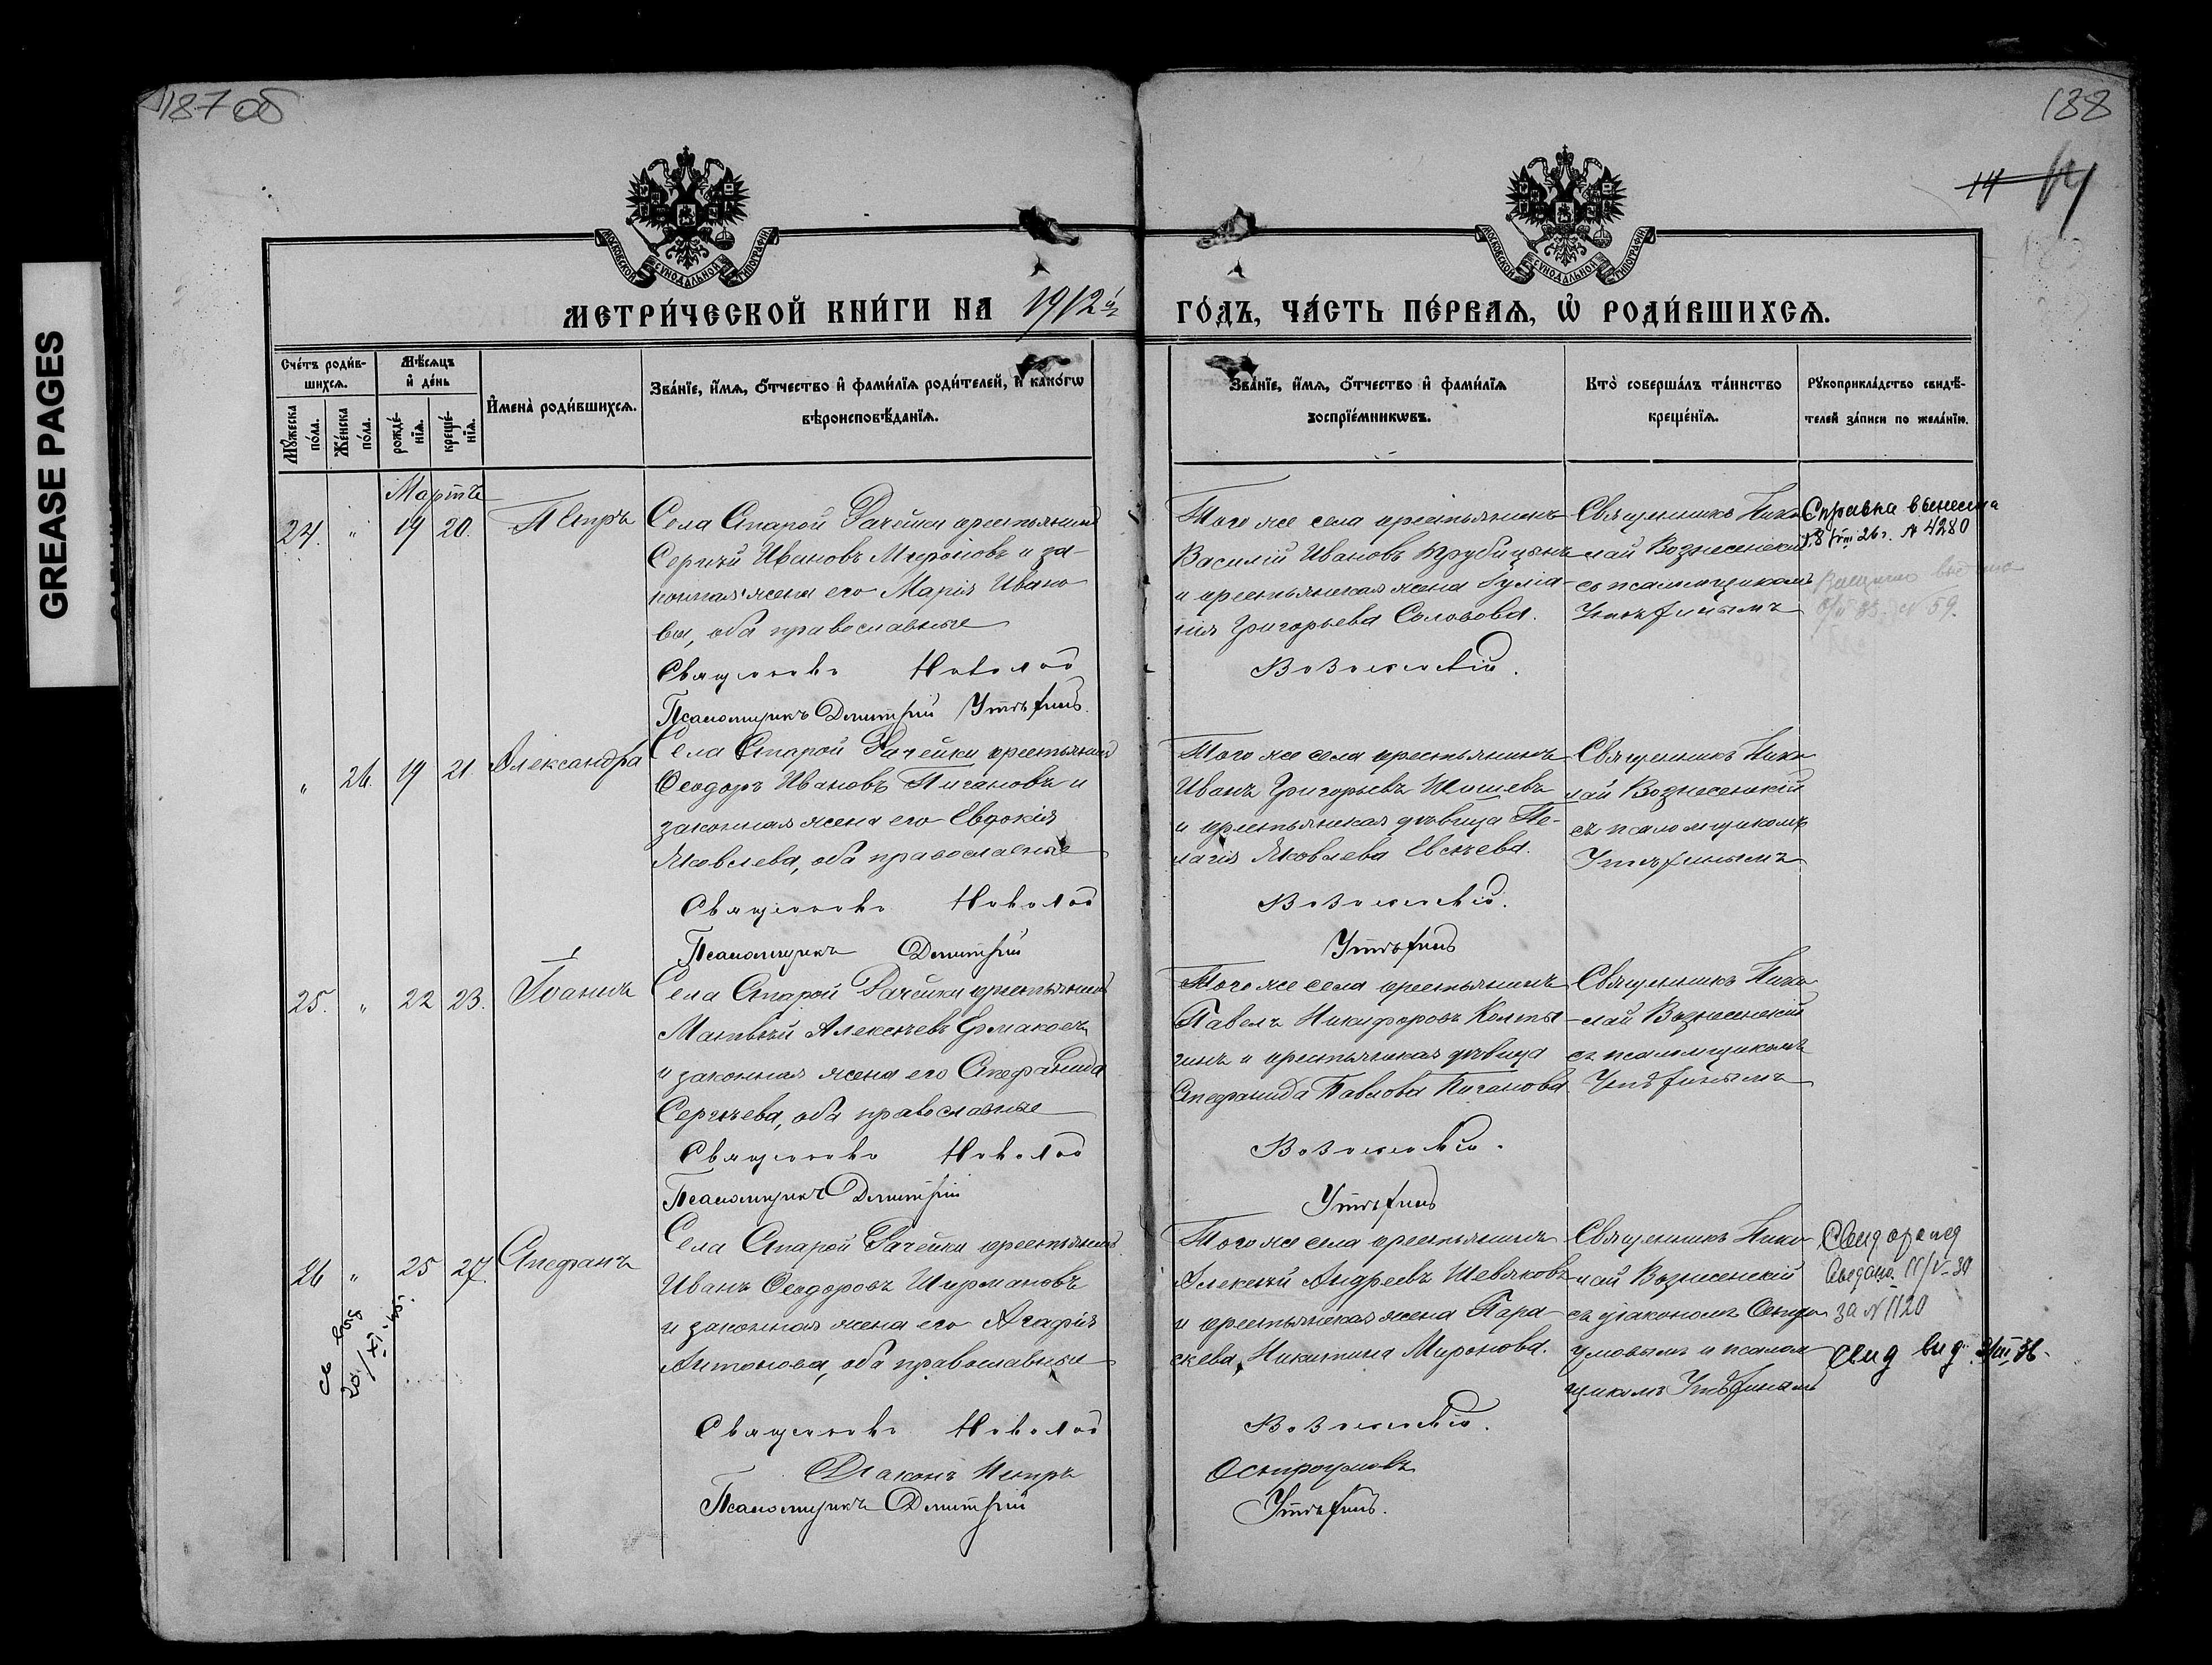 GREASE PAGES
187 об
188
14
14
МОСКОВСКОЙ СѴНОДАЛЬНОЙ ТИПОГРАФІИ
МОСКОВСКОЙ СѴНОДАЛЬНОЙ ТИПОГРАФІИ
МЕТРИ́ЧЕСКОЙ КНИ́ГИ НА 1912й ГО́ДЪ, ЧА́СТЬ ПЕ́РВАѦ, Ѡ҆ РОДИ́ВШИХСѦ.
Сче́тъ роди́в-
шихсѧ.
Мꙋ́жеска
по́ла.
Же́нска
по́ла.
Мѣ́сѧцъ
и҆ де́нь
рожде́-
нїѧ.
креще́-
нїѧ.
И҆мена̀ роди́вшихсѧ.
Зва́нїе, и҆́мѧ, ѻ҆́тчество и҆ фами́лїѧ роди́телей, и҆ како́гѡ
вѣроисповѣ́данїѧ.
Зва́нїе, и҆́мѧ, ѻ҆́тчество и҆ фами́лїѧ
воспрїе́мникѡвъ.
Кто̀ соверша́лъ та́инство
креще́нїѧ.
Рꙋкоприкла́дство свидѣ́-
телей за́писи по жела́нїю.
Мартъ
24. " 19 20. Петръ
Села Старой Рачейки крестьянинъ
Сергѣй Ивановъ Мироновъ и за-
конная жена его Марія Ивано
ва, оба православные
Священникъ Николай
Псаломщикъ Димитрій Утѣхинъ.
Того же села крестьянинъ
Василій Ивановъ Трубицынъ
и крестьянская жена Іуліа-
нія Григорьева Соловова.
Вознесенскій.
Священникъ Нико
лай Вознесенскій
съ псаломщикомъ
Утѣхинымъ
Справка вынесена
№ 4280
№ 59.
" 26. 19 21 Александра
Села Старой Рачейки крестьянинъ
Ѳеодоръ Ивановъ Пигановъ и
законная жена его Евдокія
Яковлева, оба православные
Священникъ Николай
Псаломщикъ Димитрій
Того же села крестьянинъ
Иванъ Григорьевъ Шишевъ
и крестьянская дѣвица Пе-
лагія Яковлева Евсѣева.
Вознесенскій.
Утѣхинъ
Священникъ Нико
лай Вознесенскій
съ псаломщикомъ
Утѣхинымъ
25. " 22 23. Іоаннъ
Села Старой Рачейки крестьянинъ
Матвѣй Алексѣевъ Ермаковъ
и законная жена его Стефанида
Сергѣева, оба православные
Священникъ Николай
Псаломщикъ Димитрій
Того же села крестьянинъ
Павелъ Никифоровъ Колты
гинъ и крестьянская дѣвица
Стефанида Павлова Пиганова
Вознесенскій.
Утѣхинъ
Священникъ Нико
лай Вознесенскій
съ псаломщикомъ
Утѣхинымъ
26 " 25 27. Стефанъ
Села Старой Рачейки крестьянинъ
Иванъ Ѳеодоровъ Ширмановъ
и законная жена его Агафія
Антонова, оба православные
Священникъ Николай
Діаконъ Петръ
Псаломщикъ Димитрій
Того же села крестьянинъ
Алексѣй Андреевъ Шевяковъ
и крестьянская жена Пара-
скева Никитина Миронова.
Вознесенскій.
Остроумовъ
Утѣхинъ.
Священникъ Нико
лай Вознесенскій
съ діакономъ Остро
умовымъ и псалом
щикомъ Утѣхинымъ
за № 1120
свид выд